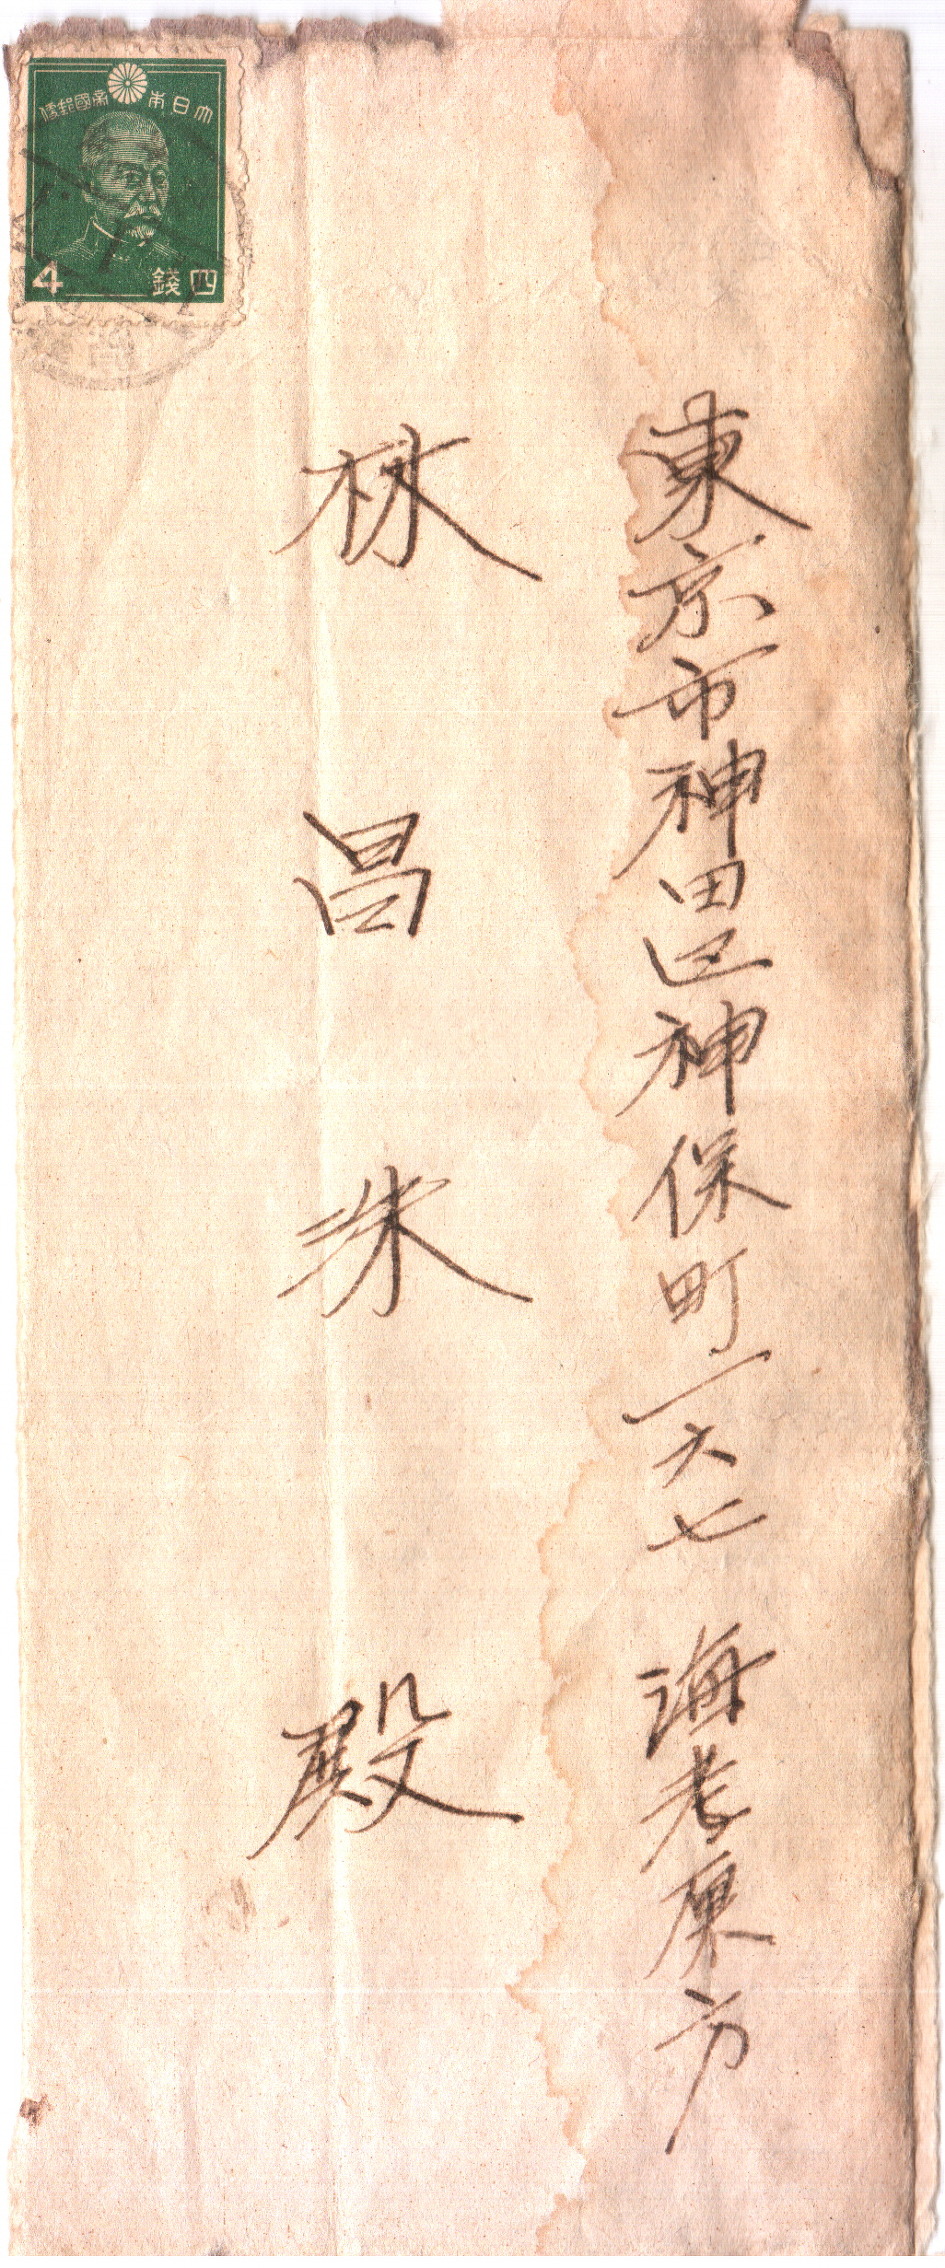 大日本帝國郵便
4 四錢
東京市神田区神保町一六七 海老原方
林昌洙殿